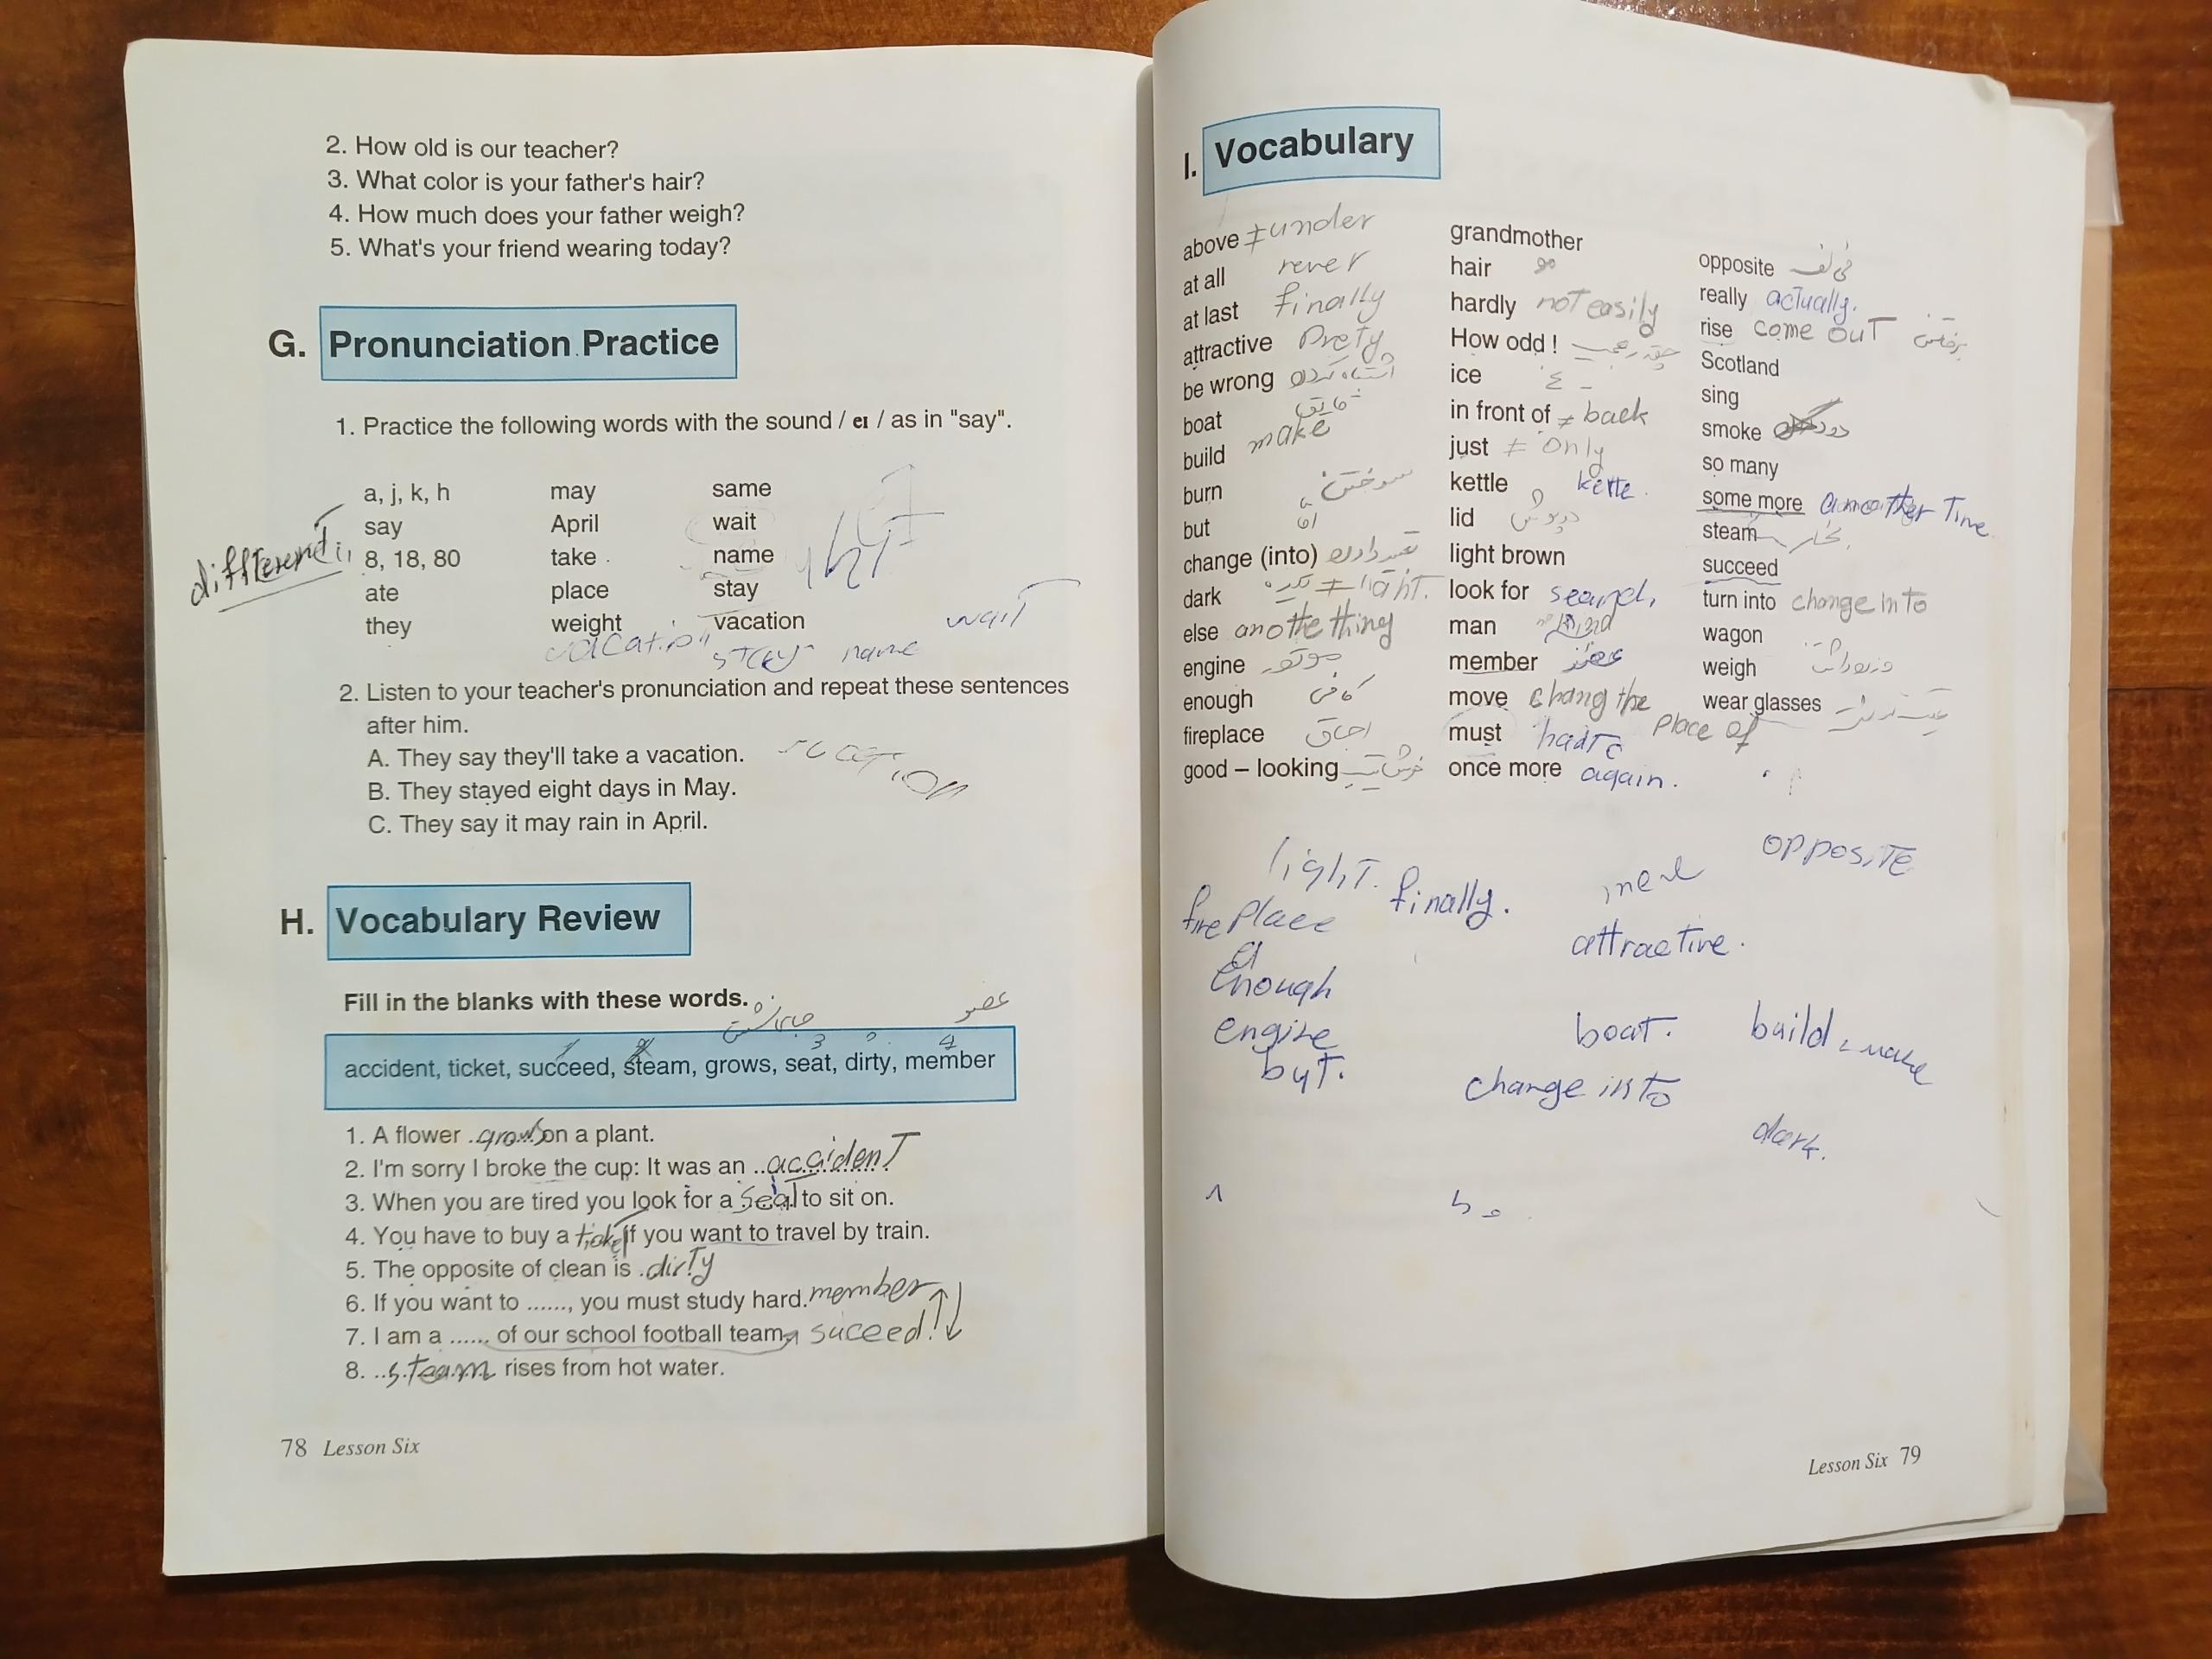 2. How old is our teacher?
3. What color is your father's hair?
4. How much does your father weigh?
5. What's your friend wearing today?
G. Pronunciation Practice
1. Practice the following words with the sound / eɪ / as in "say".
a, j, k, h may same
say April wait
different
8, 18, 80 take name
ate place stay
they weight vacation
wait
vacation stay name
2. Listen to your teacher's pronunciation and repeat these sentences
after him.
A. They say they'll take a vacation.
B. They stayed eight days in May.
C. They say it may rain in April.
H. Vocabulary Review
Fill in the blanks with these words.
عضو
accident, ticket, succeed, steam, grows, seat, dirty, member
1. A flower grows on a plant.
2. I'm sorry I broke the cup: It was an accident
3. When you are tired you look for a seat to sit on.
4. You have to buy a ticket if you want to travel by train.
5. The opposite of clean is dirty
6. If you want to ......, you must study hard. member
7. I am a ...... of our school football team, suceed
8. steam rises from hot water.
78 Lesson Six
I. Vocabulary
above ≠ under
at all
at last finally
attractive Prety
be wrong اشتباه کردن
boat قایق
build make
burn سوختن
but اما
change (into) تغییر دادن
dark ≠ light.
else anothe thing
engine موتور
enough کافی
fireplace اجاق
good – looking
grandmother
hair مو
hardly not easily
How odd !
ice یخ
in front of ≠ back
just ≠ only
kettle
lid درپوش
light brown
look for search,
man
member عضو
move chang the place of
must
once more again.
opposite
really actually.
rise come out برخاستن
Scotland
sing
smoke دود
so many
some more
steam بخار
succeed
turn into change into
wagon
weigh وزن داشتن
wear glasses
light. finally. opposite
fire place attractive.
enough
engine boat. build make
but. change into
dark.
Lesson Six 79